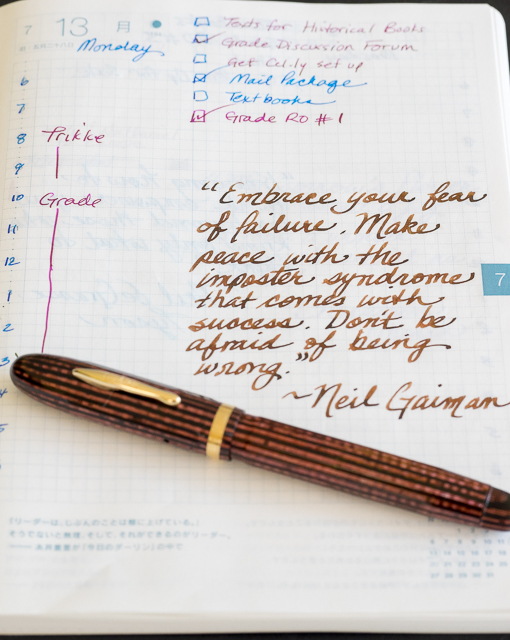 7 13 月
Monday
Texts for Historical Books
Grade Discussion Forum
Get Cal.ly set up
Mail Package
Textbooks
Grade RO #1
6
7
8 Trikke
9
10 Grade
11
12
1
2
3
4
5
"Embrace your fear
of failure. Make
peace with the
imposter syndrome
that comes with
success. Don't be
afraid of being
wrong."
~Neil Gaiman
7
「リーダーは、じぶんのことは棚に上げている。」
そうでないと無理。そして、それができるのがリーダー。